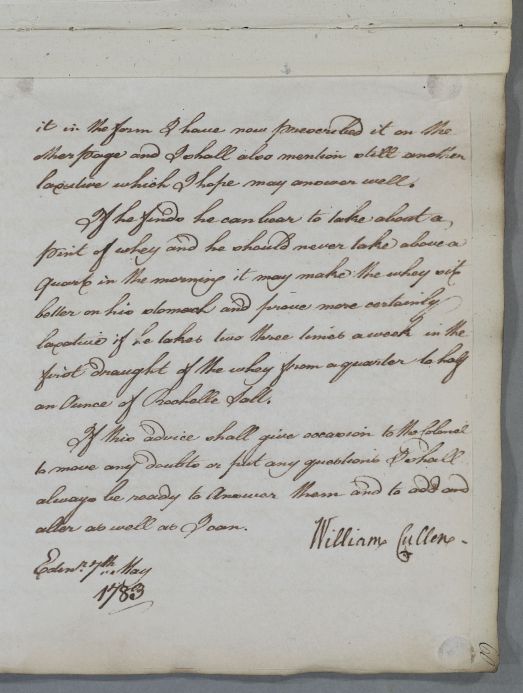 it in the form I have now prescribed it on the
other page and I shall also mention still another
laxative which I hope may answer well.
If he finds he can bear to take about a
pint of whey and he should never take above a
quart in the morning it may make the whey sit
better on his stomach and prove more certainly
laxative if he takes two three times a week in the
first draught of the whey from a quarter to half
an Ounce of Rochelle Salt.
If this advice shall give occasion to the Colonel
to move any doubts or put any questions I shall
always be ready to Answer them and to add and
alter as well as I can.
William Cullen
Edinr. 7th. May
1783